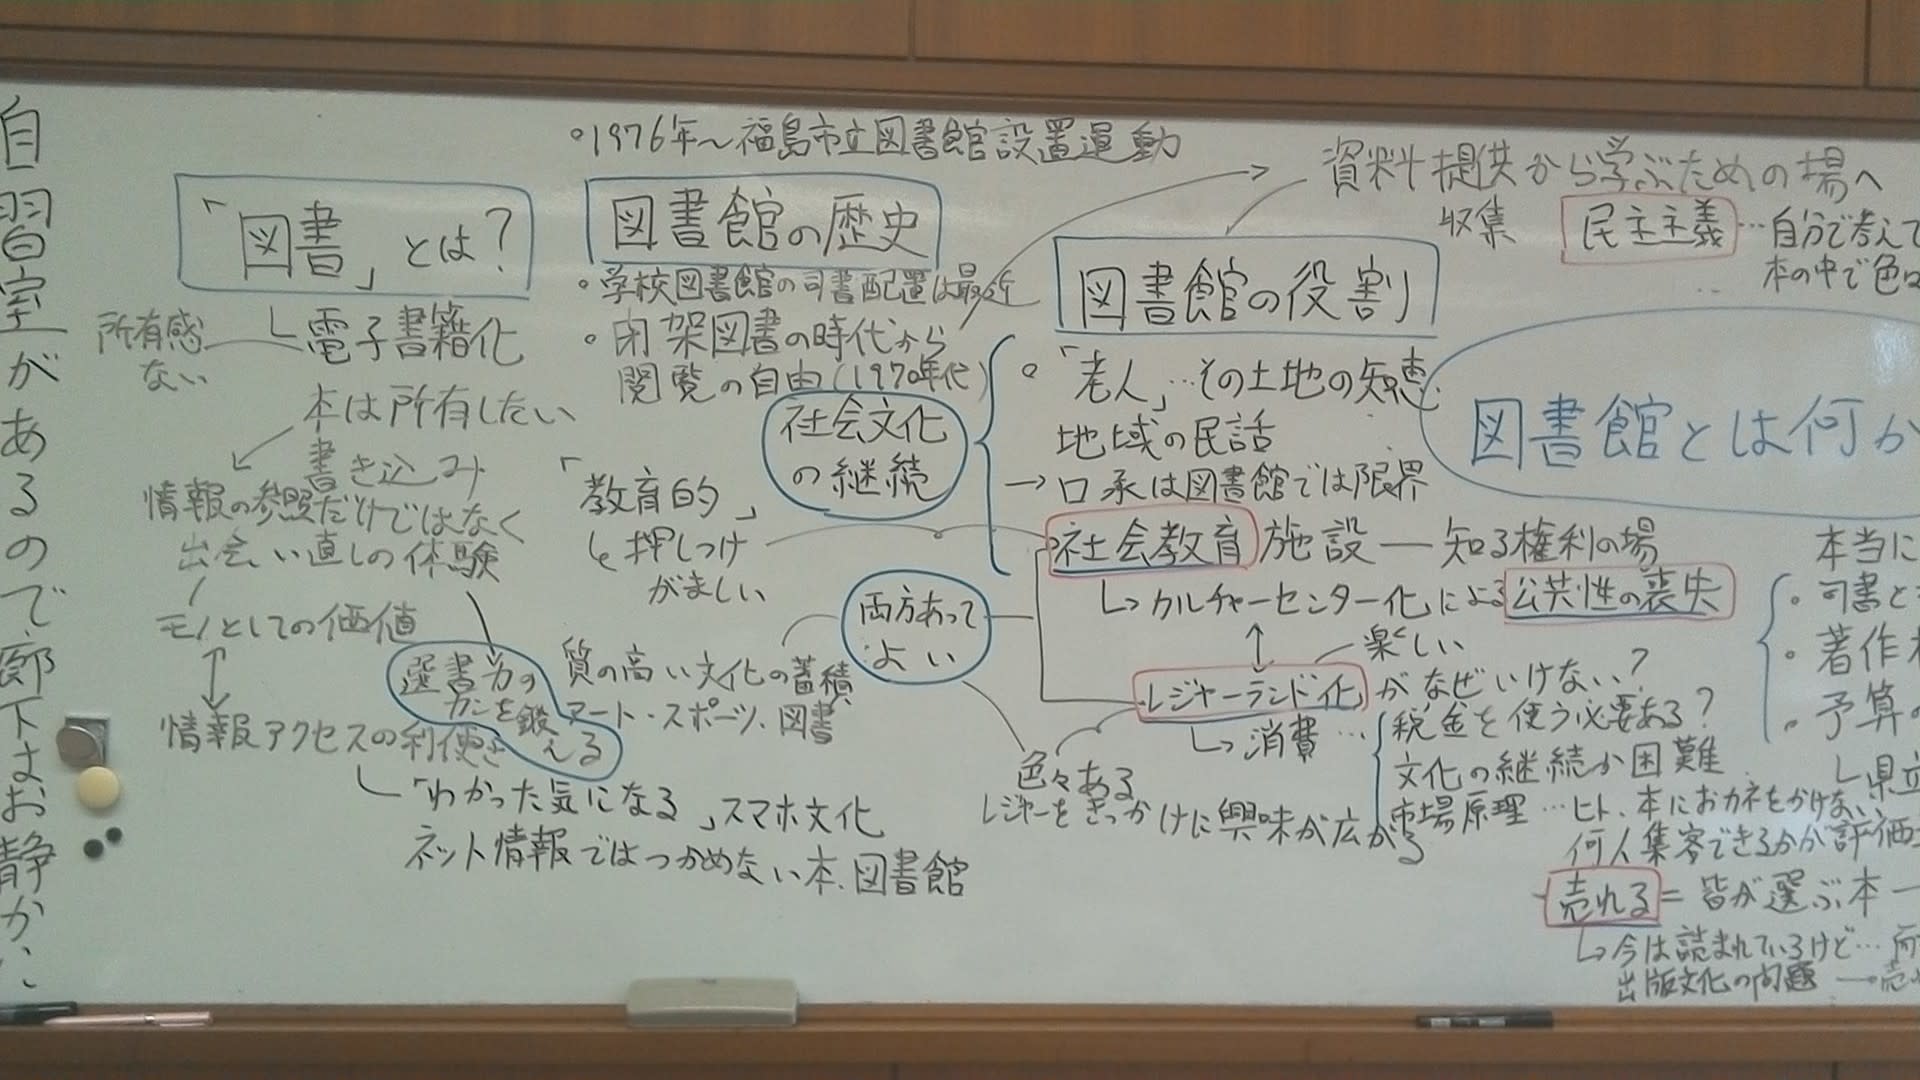 自習室があるので廊下はお静かに
「図書」とは?
電子書籍化
所有感
ない
本は所有したい
書き込み
情報の参照だけではなく
出会い直しの体験
モノとしての価値
情報アクセスの利便さ
「わかった気になる」スマホ文化
ネット情報ではつかめない本、図書館
選書力の
カンを鍛
える
・1976年~福島市立図書館設置運動
図書館の歴史
・学校図書館の司書配置は最近
・閉架図書の時代から
閲覧の自由(1970年代)
社会文化
の継続
「教育的」
押しつけ
がましい
両方あって
よい
質の高い文化の蓄積
アート・スポーツ、図書
色々ある
レジャーをきっかけに興味が広がる
資料提供から学ぶための場へ
収集
民主主義…自分で考えて
本の中で色
図書館の役割
・「老人」…その土地の知恵
地域の民話
→口承は図書館では限界
社会教育施設―知る権利の場
カルチャーセンター化による公共性の喪失
楽しい
レジャーランド化がなぜいけない?
消費…
税金を使う必要ある?
文化の継続が困難
市場原理…ヒト、本におカネをかけない
何人集客できるかが評価
売れる=皆が選ぶ本
今は読まれているけど…
出版文化の問題→売
図書館とは何か
本当に
・司書と
・著作
・予算の
県立